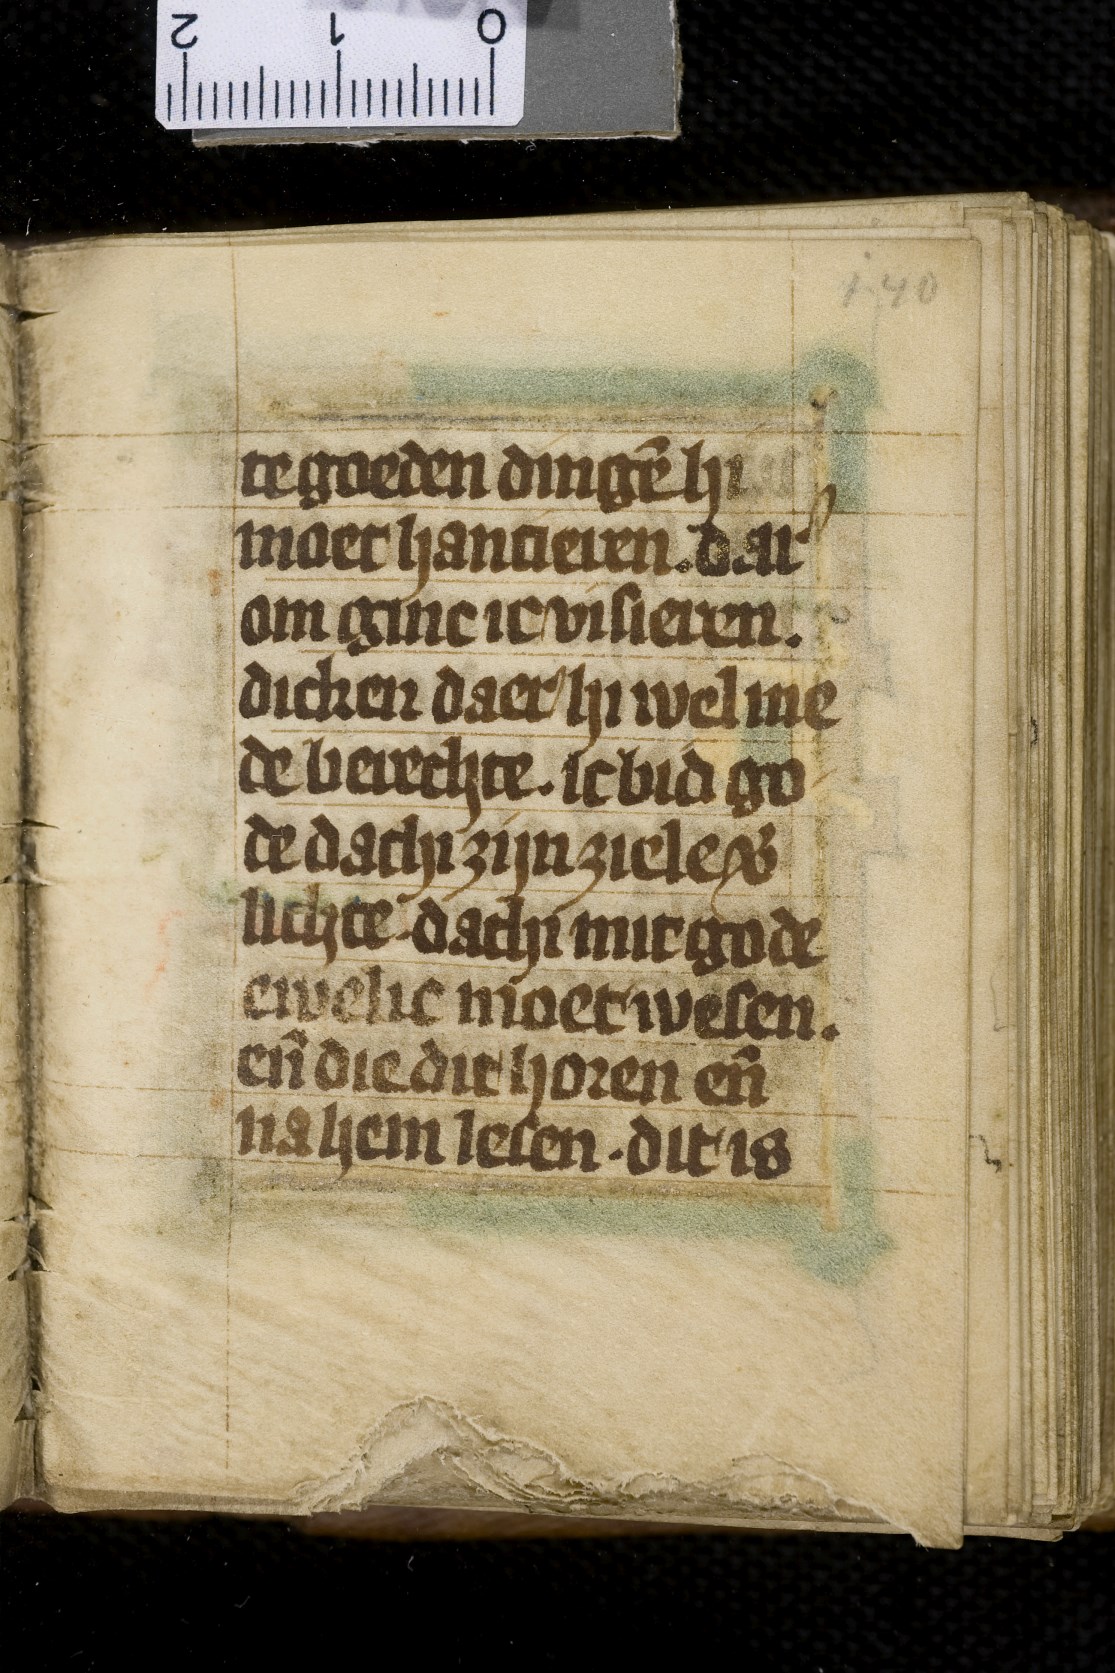 2 1 0
140
te goeden dingē hi
moet hantieren. dar
om ginc ic visieren.
dicken daer hi wel me
de berechte. ic bid go
de dat hi zijn ziele v̕
lichte. dat hi mit gode
ewelic moet wesen.
en̄ die dit horen en̄
na hem lesen. dit is